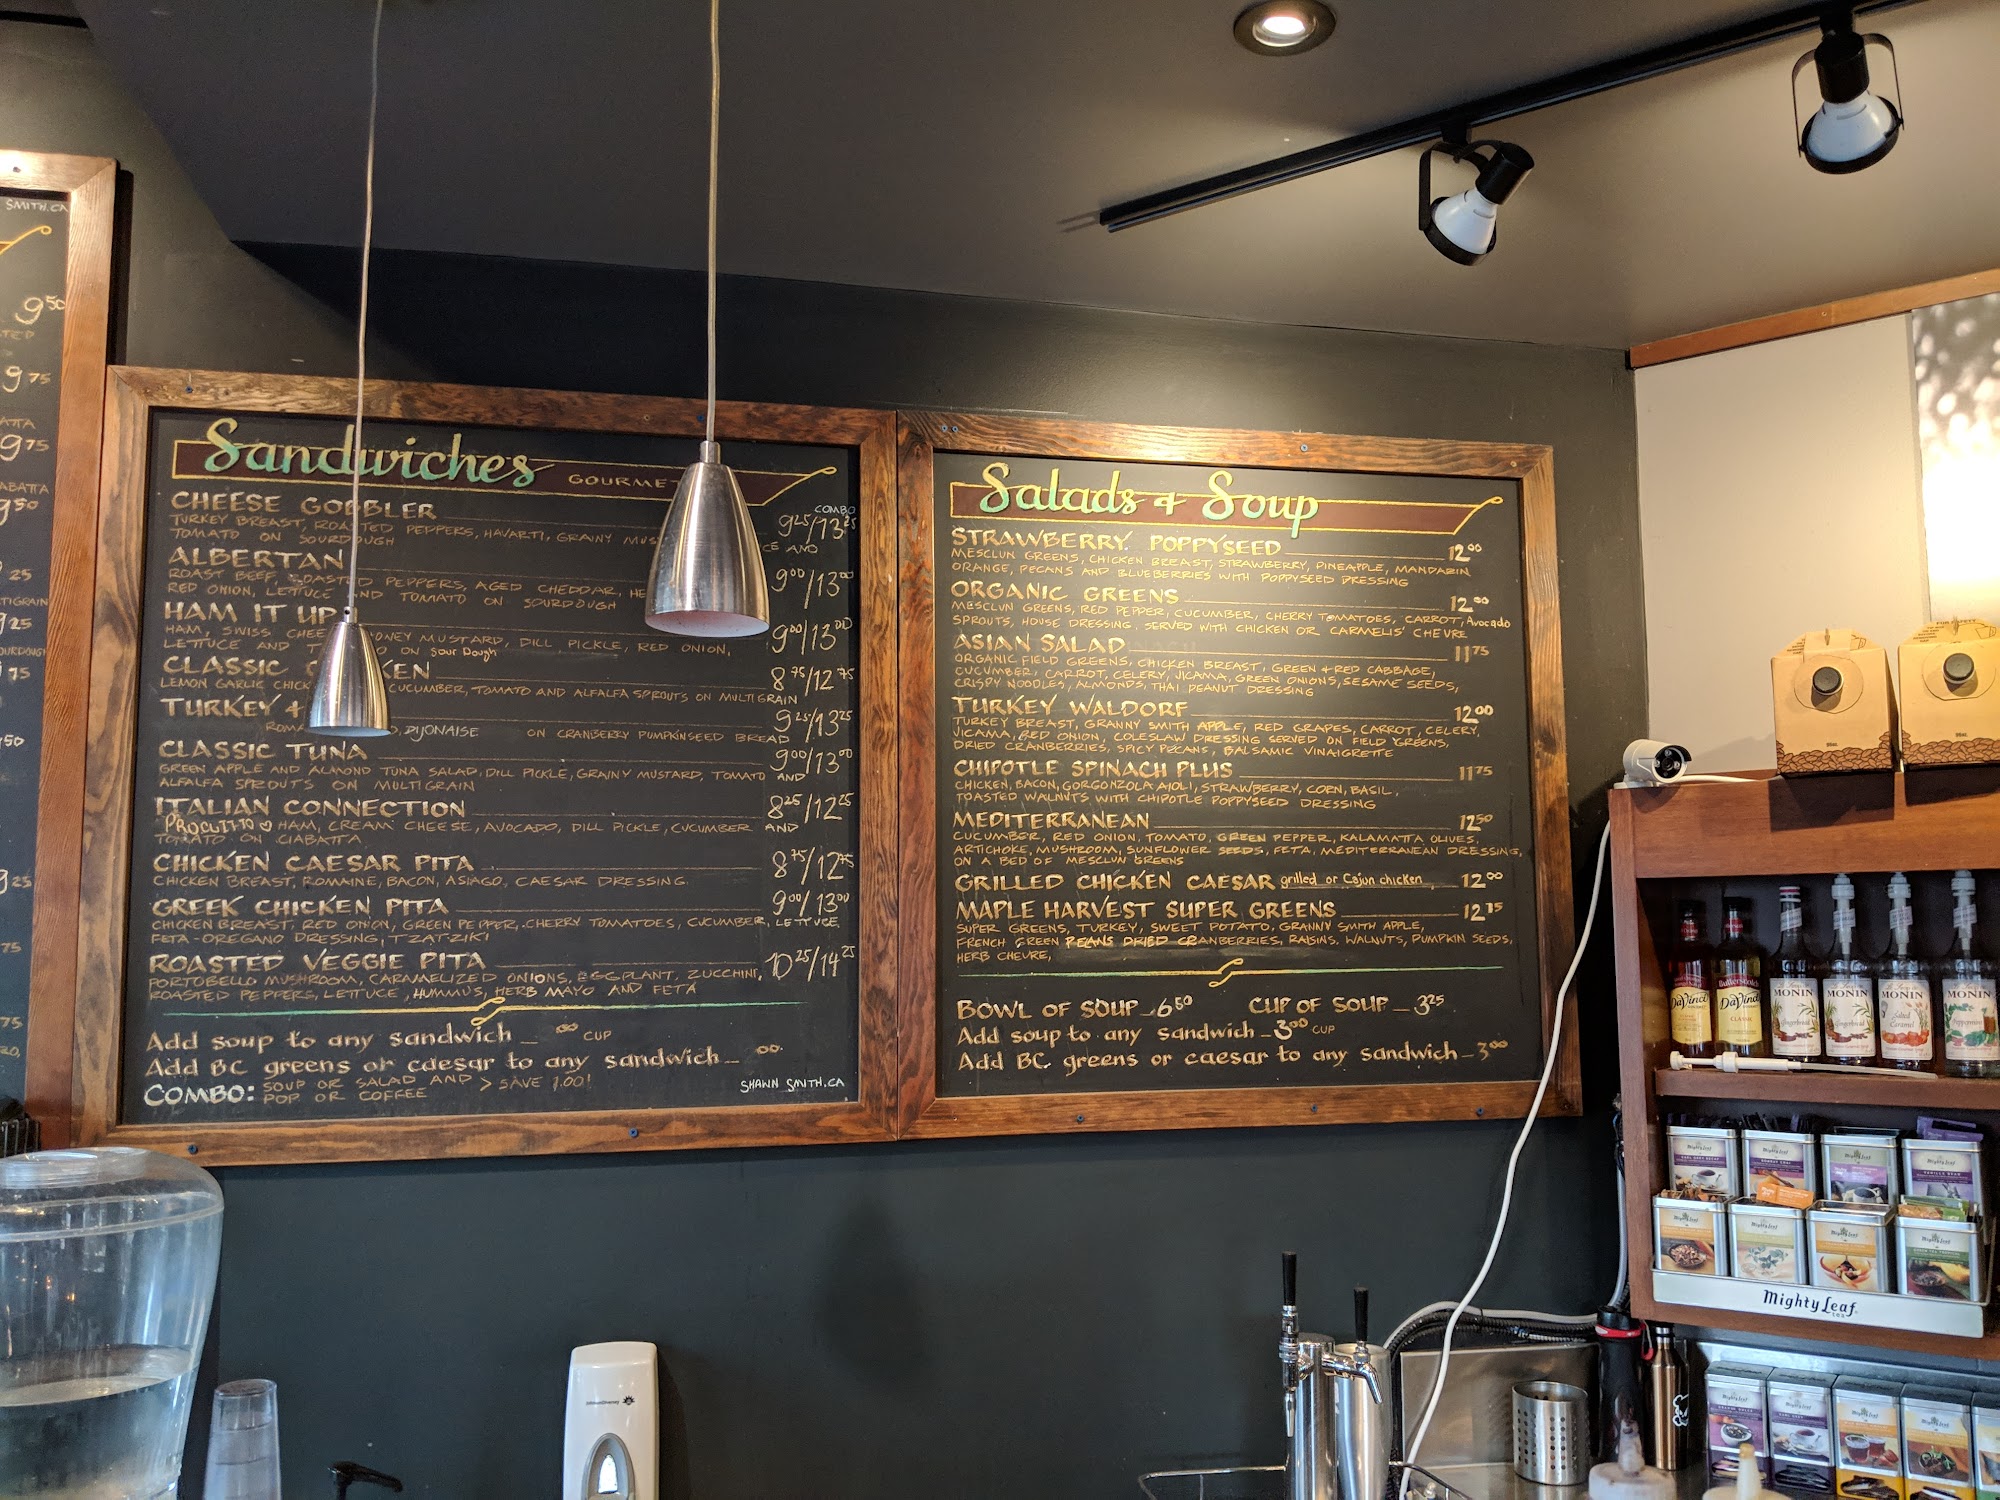 SMITH.CA
9.50
9.75
9.75
9.50
Sandwiches GOURMET
COMBO
CHEESE GOBBLER 9.25/13.25
TURKEY BREAST, ROASTED PEPPERS, HAVARTI, GRAINY
TOMATO ON SOURDOUGH
ALBERTAN 9.00/13.00
ROAST BEEF, ROASTED PEPPERS, AGED CHEDDAR,
RED ONION, LETTUCE AND TOMATO ON SOURDOUGH
HAM IT UP 9.00/13.00
HAM, SWISS HONEY MUSTARD, DILL PICKLE, RED ONION,
LETTUCE AND ON Sour Dough
CLASSIC 8.75/12.75
LEMON GARLIC CUCUMBER, TOMATO AND ALFALFA SPROUTS ON MULTIGRAIN
TURKEY & 9.25/13.25
DIJONAISE ON CRANBERRY PUMPKINSEED BREAD
CLASSIC TUNA 9.00/13.00
GREEN APPLE AND ALMOND TUNA SALAD, DILL PICKLE, GRAINY MUSTARD, TOMATO AND
ALFALFA SPROUTS ON MULTIGRAIN
ITALIAN CONNECTION 8.25/12.25
PROCUITTO HAM, CREAM CHEESE, AVOCADO, DILL PICKLE, CUCUMBER AND
TOMATO ON CIABATTA
CHICKEN CAESAR PITA 8.75/12.75
CHICKEN BREAST, ROMAINE, BACON, ASIAGO, CAESAR DRESSING.
GREEK CHICKEN PITA 9.00/13.00
CHICKEN BREAST, RED ONION, GREEN PEPPER, CHERRY TOMATOES, CUCUMBER, LETTUCE,
FETA-OREGANO DRESSING, TZATZIKI
ROASTED VEGGIE PITA 10.25/14.25
PORTOBELLO MUSHROOM, CARAMELIZED ONIONS, EGGPLANT, ZUCCHINI,
ROASTED PEPPERS, LETTUCE, HUMMUS, HERB MAYO AND FETA
Add soup to any sandwich _ .00 CUP
Add BC greens or caesar to any sandwich _ .00
COMBO: SOUP OR SALAD AND > SAVE 1.00!
POP OR COFFEE
SHAWN SMITH.CA
Salads & Soup
STRAWBERRY POPPYSEED 12.00
MESCLUN GREENS, CHICKEN BREAST, STRAWBERRY, PINEAPPLE, MANDARIN
ORANGE, PECANS AND BLUEBERRIES WITH POPPYSEED DRESSING
ORGANIC GREENS 12.00
MESCLUN GREENS, RED PEPPER, CUCUMBER, CHERRY TOMATOES, CARROT, Avocado
SPROUTS, HOUSE DRESSING. SERVED WITH CHICKEN OR CARMELIS' CHEVRE
ASIAN SALAD 11.75
ORGANIC FIELD GREENS, CHICKEN BREAST, GREEN & RED CABBAGE,
CUCUMBER, CARROT, CELERY, JICAMA, GREEN ONIONS, SESAME SEEDS,
CRISPY NOODLES, ALMONDS, THAI PEANUT DRESSING
TURKEY WALDORF 12.00
TURKEY BREAST, GRANNY SMITH APPLE, RED GRAPES, CARROT, CELERY,
JICAMA, RED ONION, COLESLAW DRESSING SERVED ON FIELD GREENS,
DRIED CRANBERRIES, SPICY PECANS, BALSAMIC VINAIGRETTE
CHIPOTLE SPINACH PLUS 11.75
CHICKEN, BACON, GORGONZOLA AIOLI, STRAWBERRY, CORN, BASIL,
TOASTED WALNUTS WITH CHIPOTLE POPPYSEED DRESSING
MEDITERRANEAN 12.50
CUCUMBER, RED ONION, TOMATO, GREEN PEPPER, KALAMATTA OLIVES,
ARTICHOKE, MUSHROOM, SUNFLOWER SEEDS, FETA, MEDITERRANEAN DRESSING,
ON A BED OF MESCLUN GREENS
GRILLED CHICKEN CAESAR grilled or Cajun chicken 12.00
MAPLE HARVEST SUPER GREENS 12.75
SUPER GREENS, TURKEY, SWEET POTATO, GRANNY SMITH APPLE,
FRENCH GREEN PECANS DRIED CRANBERRIES, RAISINS, WALNUTS, PUMPKIN SEEDS,
HERB CHEVRE,
BOWL OF SOUP _ 6.50 CUP OF SOUP _ 3.25
Add soup to any sandwich _ 3.00 CUP
Add BC greens or caesar to any sandwich _ 3.00
DaVinci
DaVinci
MONIN
MONIN
MONIN
MONIN
Salted Caramel
Mighty Leaf
Mighty Leaf
Mighty Leaf
Mighty Leaf
Mighty Leaf
Mighty Leaf
Mighty Leaf
Mighty Leaf
Mighty Leaf TEA
Mighty Leaf
Mighty Leaf
Mighty Leaf
Mighty Leaf